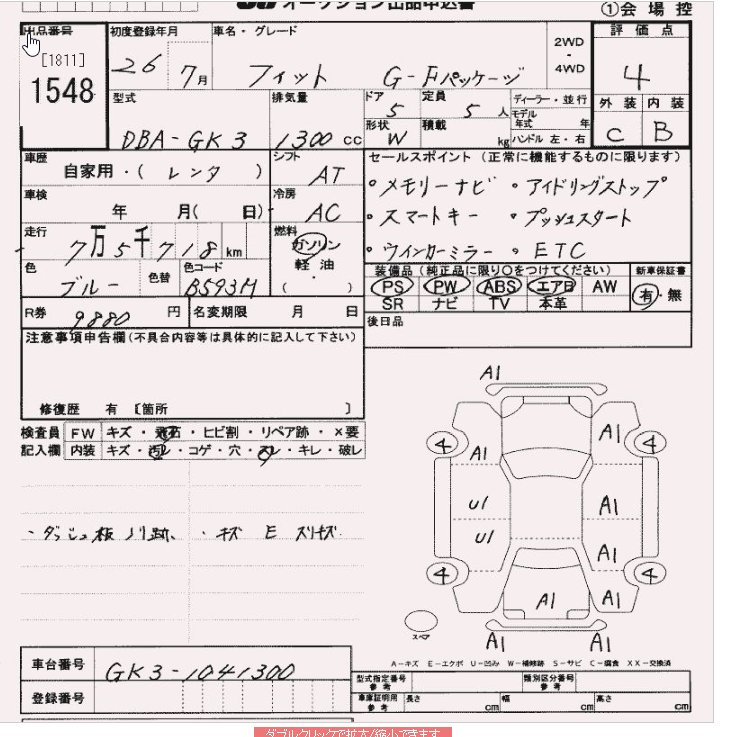 オークション出品申込書
①会場控
出品番号
[1811]
1548
初度登録年月
26 7月
車名・グレード
フィット G-Fパッケージ
2WD
-
4WD
評価点
4
外装 内装
C B
型式
DBA-GK3
排気量
1300 cc
ドア
5
定員
5 人
ディーラー・並行
モデル年式 年
形状
W
積載
kg
ハンドル 左・右
車歴
自家用・( レンタ )
シフト
AT
車検
年 月( 日)
冷房
AC
走行
7万5千718km
燃料
ガソリン
軽油
( ・ )
色
ブルー
色替
色コード
B593M
R券
9880 円
名変期限 月 日
セールスポイント (正常に機能するものに限ります)
。メモリーナビ 。アイドリングストップ
。スマートキー 。プッシュスタート
。ウインカーミラー 。ETC
装備品 (純正品に限り〇をつけてください)
PS PW ABS エアB AW
SR ナビ TV 本革
新車保証書
有・無
後日品
注意事項申告欄(不具合内容等は具体的に記入して下さい)
修復歴 有 〔箇所 〕
検査員
記入欄
FW キズ・飛石・ヒビ割・リペア跡・×要
内装 キズ・汚レ・コゲ・穴・スレ・キレ・破レ
・ダッシュ板ノリ跡、 ・キズ E スリキズ
A1
4 A1 A1 4
U1 A1
U1 A1
4 A1 A1 4
スペア
A1 A1
A-キズ E-エクボ U-凹み W-補修跡 S-サビ C-腐食 XX-交換済
車台番号
GK3-1041300
登録番号
型式指定番号
参考
類別区分番号
参考
車庫証明用
参考
長さ cm
幅 cm
高さ cm
ダブルクリックで拡大/縮小できます